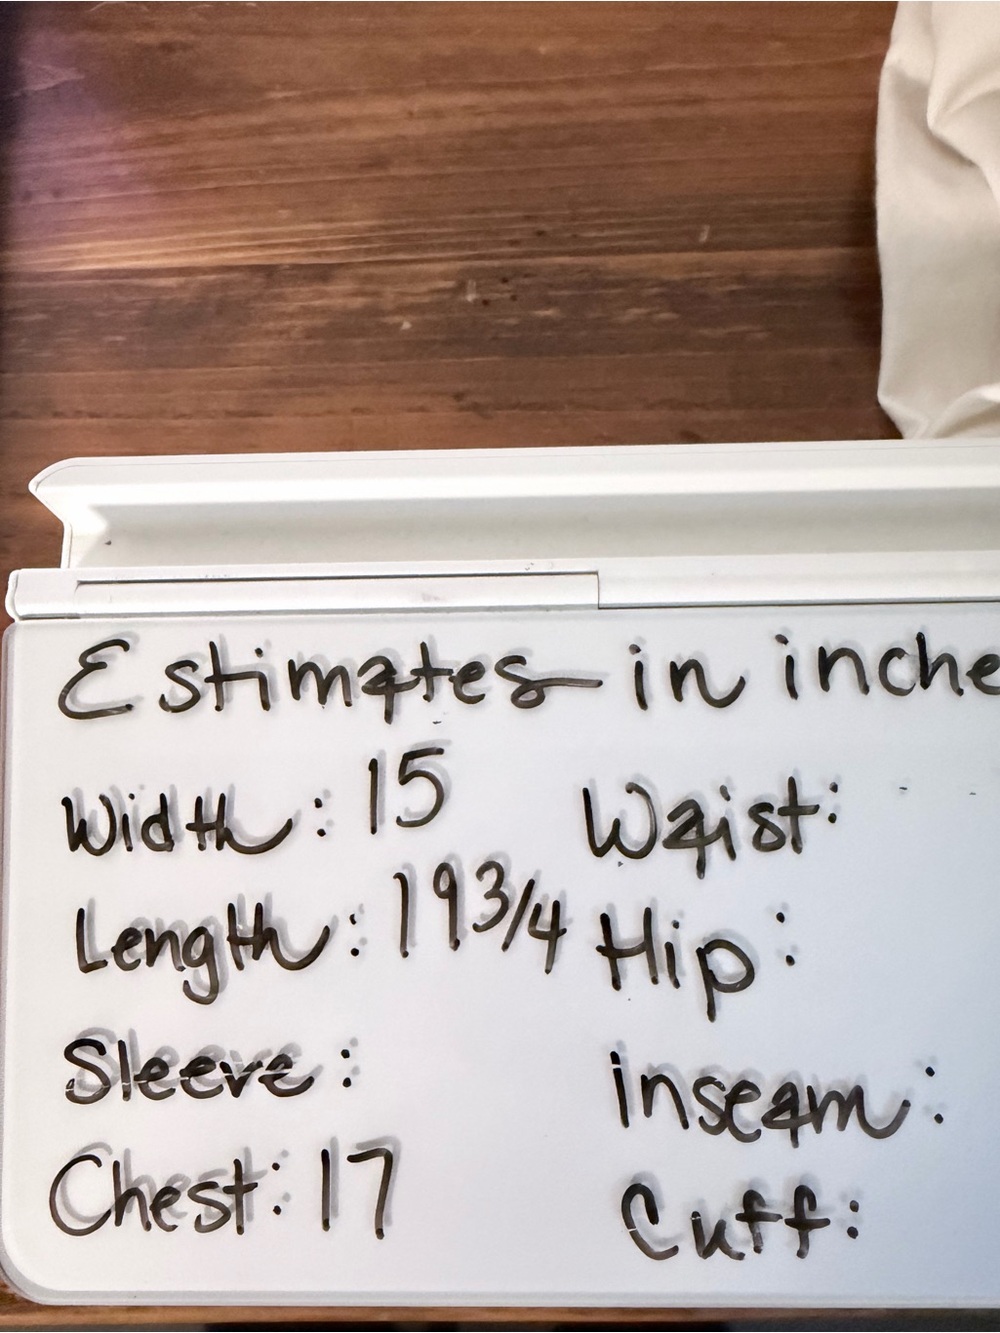 Estimates in inche
Width: 15
Waist:
Length: 19 3/4
Hip:
Sleeve:
inseam:
Chest: 17
Cuff: